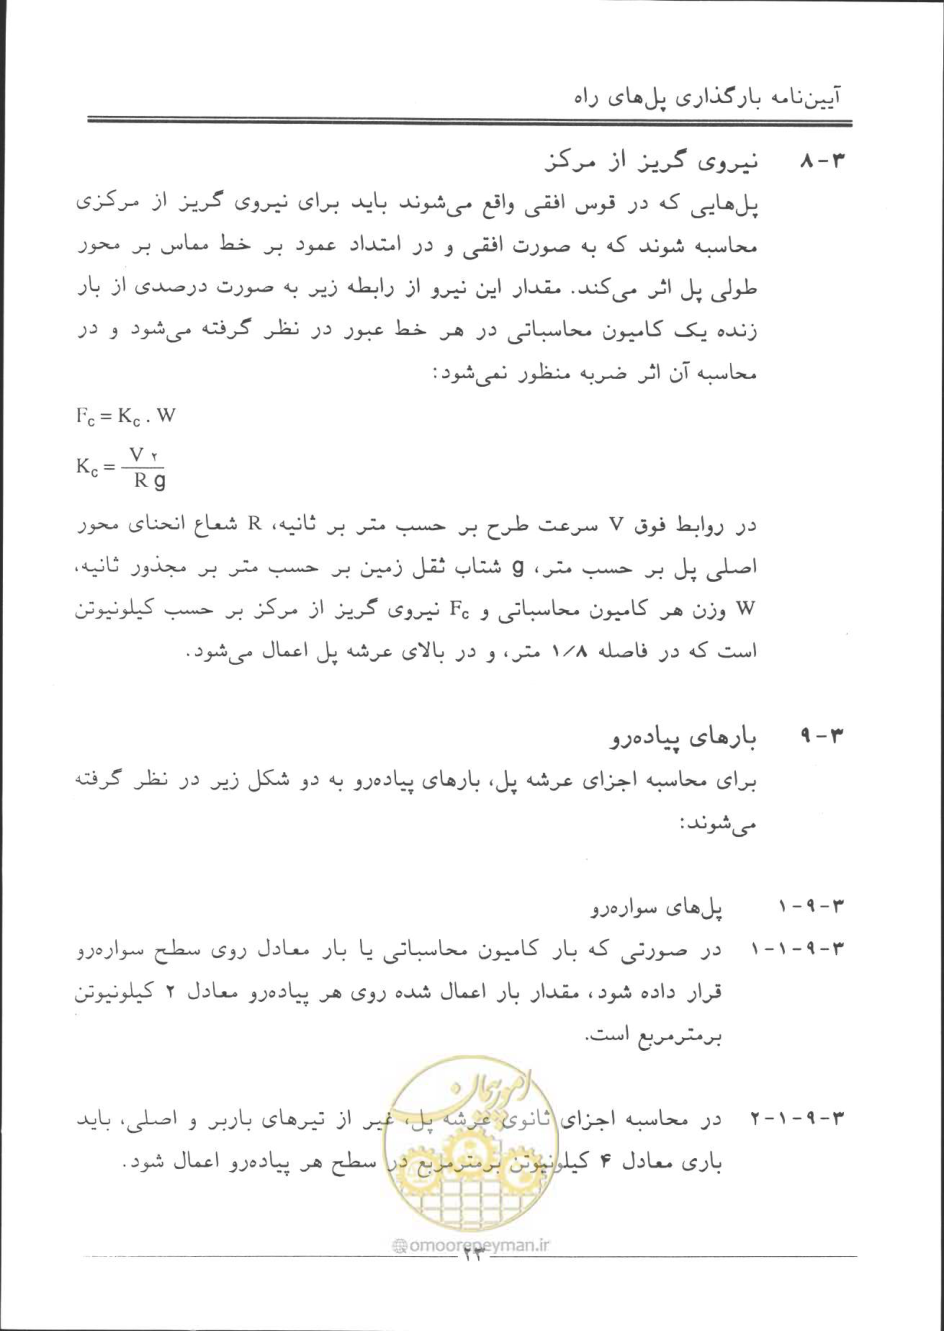 آیین‌نامه بارگذاری پل‌های راه
۳-۸ نیروی گریز از مرکز
پل‌هایی که در قوس افقی واقع می‌شوند باید برای نیروی گریز از مرکزی
محاسبه شوند که به صورت افقی و در امتداد عمود بر خط مماس بر محور
طولی پل اثر می‌کند. مقدار این نیرو از رابطه زیر به صورت درصدی از بار
زنده یک کامیون محاسباتی در هر خط عبور در نظر گرفته می‌شود و در
محاسبه آن اثر ضربه منظور نمی‌شود:
Fc = Kc . W
Kc = V ۲ / R g
در روابط فوق V سرعت طرح بر حسب متر بر ثانیه، R شعاع انحنای محور
اصلی پل بر حسب متر، g شتاب ثقل زمین بر حسب متر بر مجذور ثانیه،
W وزن هر کامیون محاسباتی و Fc نیروی گریز از مرکز بر حسب کیلونیوتن
است که در فاصله ۱/۸ متر، و در بالای عرشه پل اعمال می‌شود.
۳-۹ بارهای پیاده‌رو
برای محاسبه اجزای عرشه پل، بارهای پیاده‌رو به دو شکل زیر در نظر گرفته
می‌شوند:
۳-۹-۱ پل‌های سواره‌رو
۳-۹-۱-۱ در صورتی که بار کامیون محاسباتی یا بار معادل روی سطح سواره‌رو
قرار داده شود، مقدار بار اعمال شده روی هر پیاده‌رو معادل ۲ کیلونیوتن
برمترمربع است.
۳-۹-۱-۲ در محاسبه اجزای ثانوی عرشه پل، غیر از تیرهای باربر و اصلی، باید
باری معادل ۴ کیلونیوتن برمترمربع در سطح هر پیاده‌رو اعمال شود.
امور پیمان
@omoorepeyman.ir
۲۳